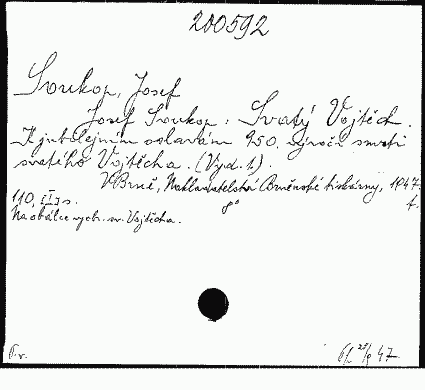 200592
Soukop, Josef
Josef Soukop: Svatý Vojtěch.
K jubilejním oslavám 950. výročí smrti
svatého Vojtěcha. (Vyd. 1).
V Brně, Nakladatelství Brněnské tiskárny, 1947.
110, II s. 8° f.
Na obálce vyobr. sv. Vojtěcha.